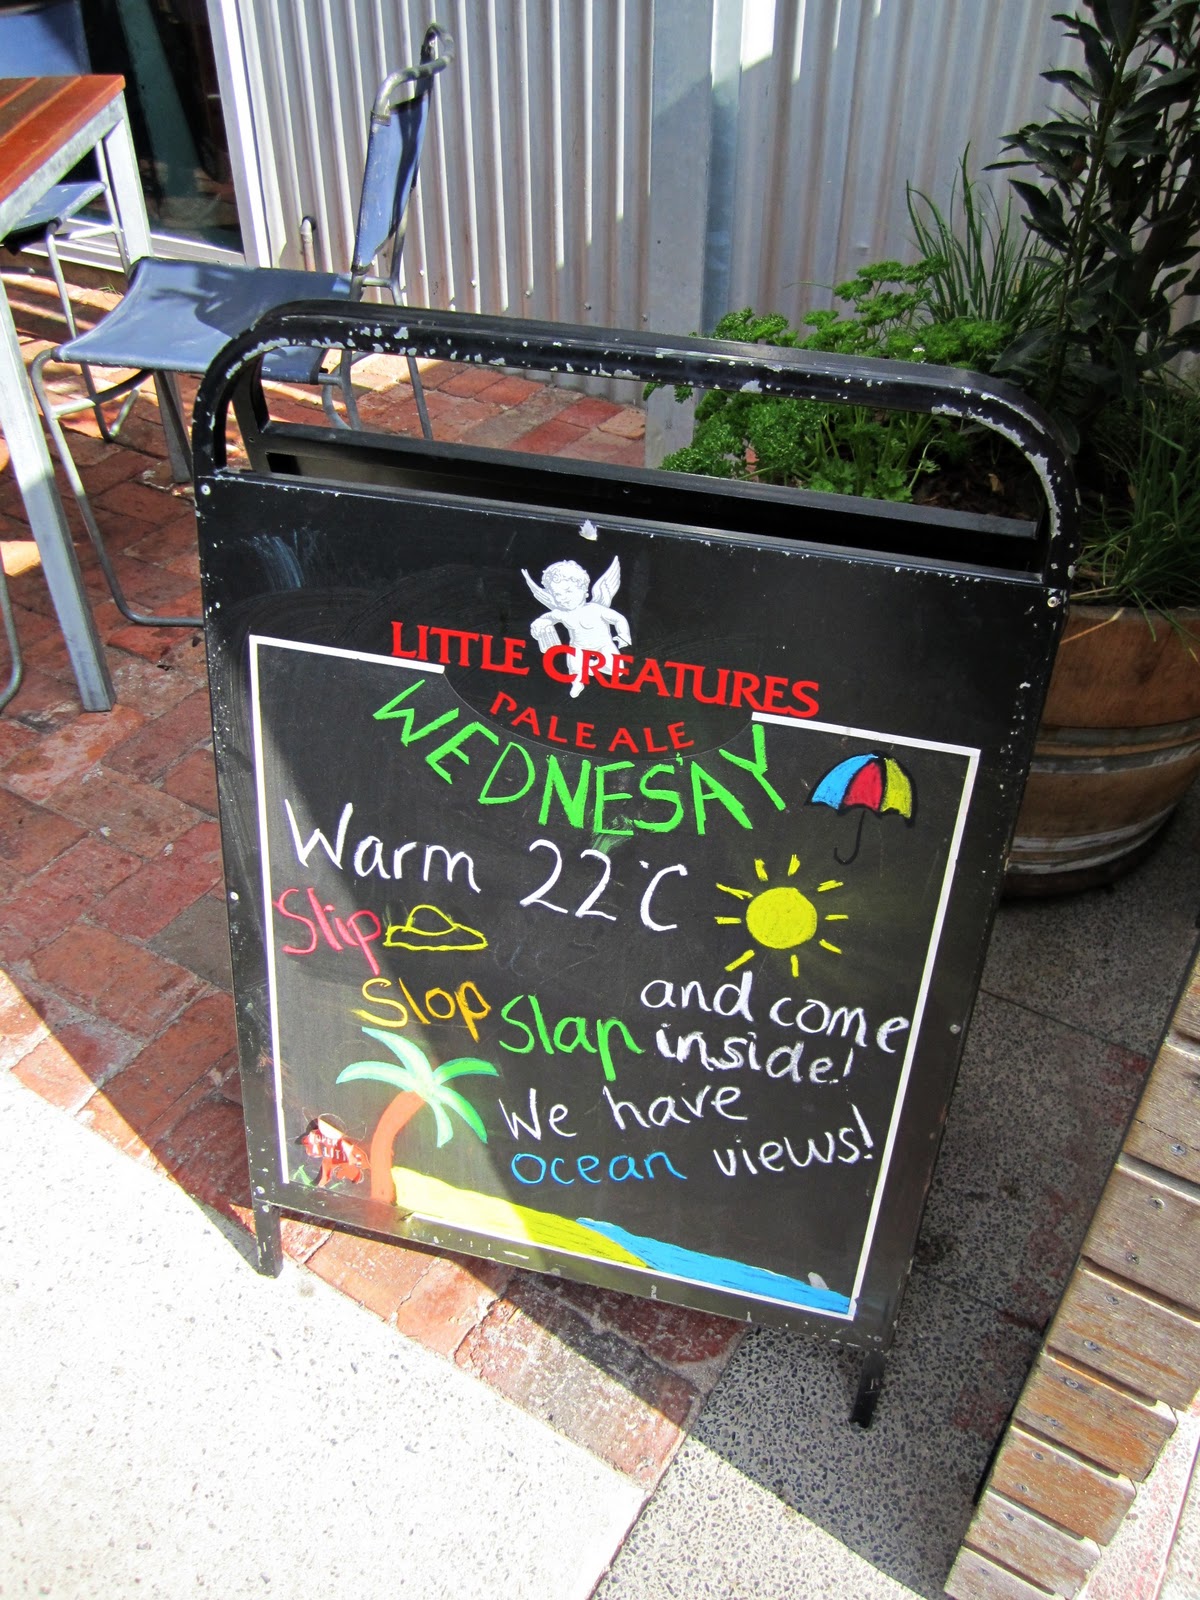 LITTLE CREATURES
PALE ALE
WEDNES'AY
Warm 22°C
Slip
Slop Slap and come
inside!
We have
ocean views!